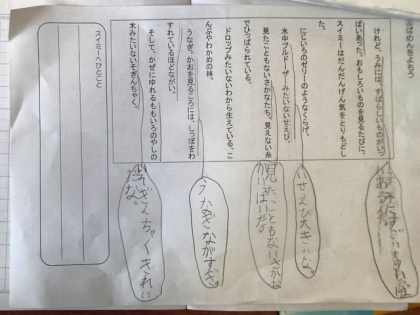 ばめんをよもう
けれど、うみには、すばらしいものがいっ
ぱいあった。おもしろいものを見るたびに、
スイミーはだんだんげん気をとりもどし
た。
にじいろのゼリーのようなくらげ。
水中ブルドーザーみたいないせえび。
見たこともないさかなたち。見えない糸
でひっぱられている。
ドロップみたいないわから生えている、こ
んぶやわかめの林。
うなぎ。かおを見るころには、しっぽをわ
すれているほどながい。
そして、かぜにゆれるももいろのやしの
木みたいないそぎんちゃく。
スイミーへひとこと
いせえび大きいな。
見たこともないさかな
がいっぱいだな。
うなぎながすぎ。
いそぎんちゃくきれい
だな。